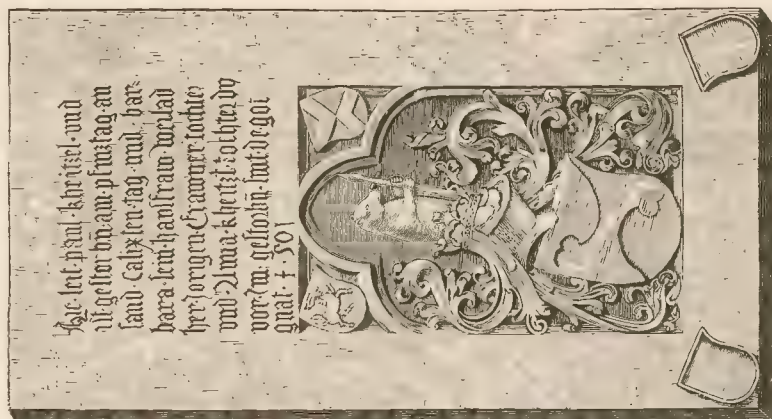 Hie · leit · paul · khr itzel · vnd
ist gestor bñ · am · pfintztag · an
sand Calixten tag · vnd · bar=
bara · sein · hausfraw · weilad
her Jorigen Chrawner · tochter
vnd Anna · khetzl · tochter
vor · dm · gestorbñ · hat · de got
gnat · 1 · 501